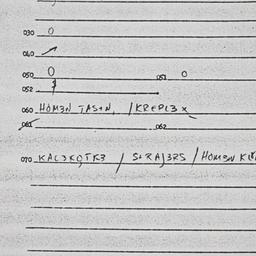 030 0
040
050 0 051 0
052
060 HOM3N TAS+N, /KREPL3X
061 062
070 KAL3KOTK3 / S+RAJ3RS / HOM3N